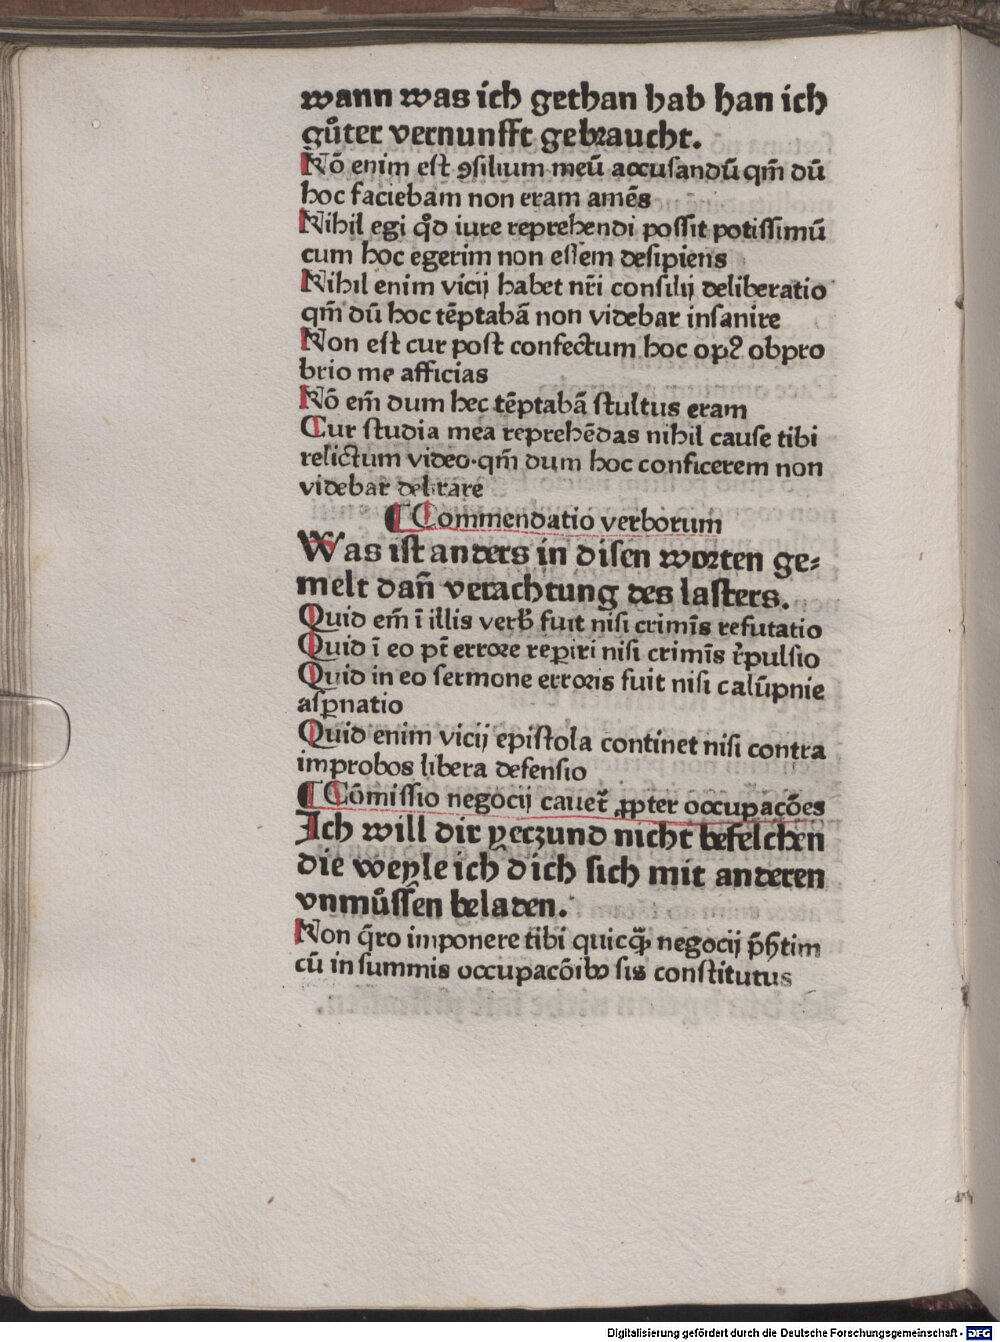 wann was ich gethan hab han ich
guͦter vernunfft gebraucht.
Nō enim est ꝯsilium meū accusandū qm̄ dū
hoc faciebam non eram amēs
Nihil egi qd̕ iure reprehendi possit potissimū
cum hoc egerim non essem desipiens
Nihil enim vicij habet nr̄i consilij deliberatio
qm̄ dū hoc tēptabā non videbar insanire
Non est cur post confectum hoc opꝰ obpro
brio me afficias
Nō em̄ dum hec tēptabā stultus eram
Cur studia mea reprehēdas nihil cause tibi
relictum video·qm̄ dum hoc conficerem non
videbar delirare
¶ Commendatio verborum
Was ist anders in disen worten ge⸗
melt dañ verachtung des lasters.
Quid em̄ ī illis verb̕ fuit nisi crimīs refutatio
Quid ī eo pt̄ errore reꝑiri nisi crimīs r̄pulsio
Quid in eo sermone erroris fuit nisi calūpnie
asꝑnatio
Quid enim vicij epistola continet nisi contra
improbos libera defensio
¶ Cōmissio negocij cauet̄ ꝓpter occupacōes
Ich will dir yetzund nicht befelchen
die weyle ich dich sich mit anderen
vnmuͦssen beladen.
Non q̄ro imponere tibi quicꝙ̄ negocij p̄n̄tim
cū in summis occupacōibꝰ sis constitutus
Digitalisierung gefördert durch die Deutsche Forschungsgemeinschaft - DFG